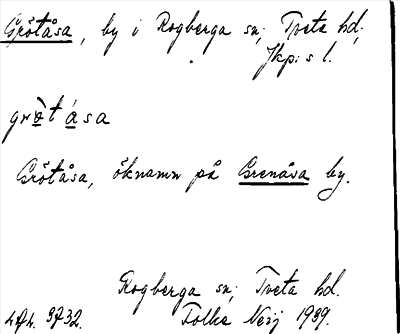 Grötåsa, by i Rogberga sn; Tveta hd;
Jkp:s l.
grò̱tá̱sa
Grötåsa, öknamn på Grenåsa by.
Rogberga sn; Tveta hd.
3732. Folke Neij 1939.